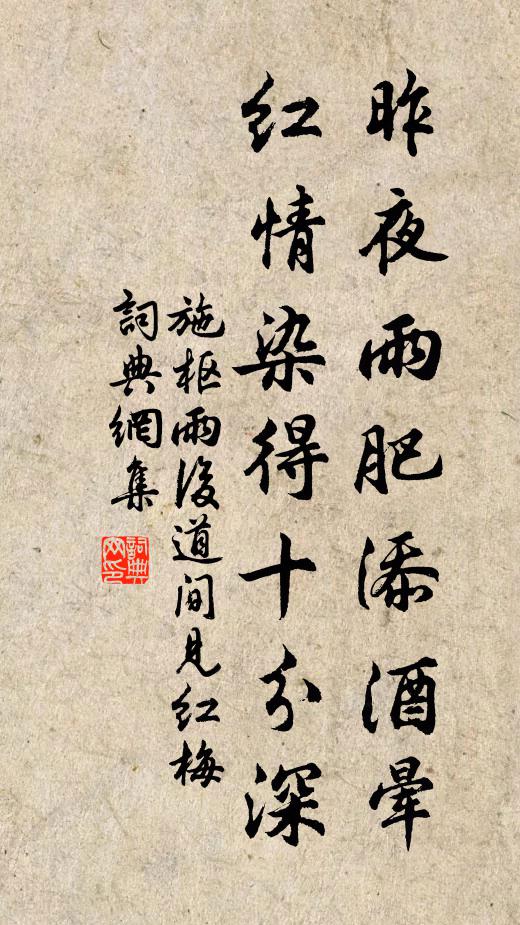 昨夜雨肥添酒暈
紅情染得十分深
施枢雨後道间見紅梅
詞典網集
詞典网印